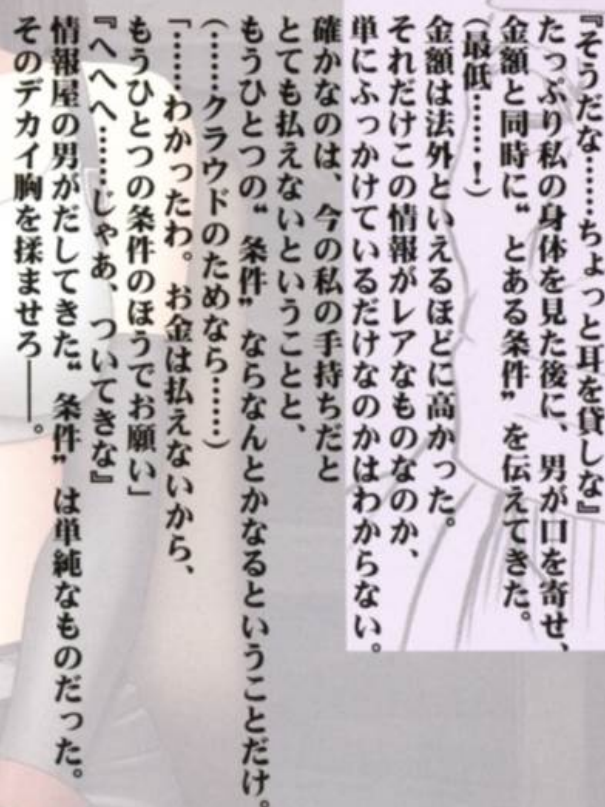 『そうだな……ちょっと耳を貸しな』
たっぷり私の身体を見た後に、男が口を寄せ、
金額と同時に“とある条件”を伝えてきた。
(最低……！)
金額は法外といえるほどに高かった。
それだけこの情報がレアなものなのか、
単にふっかけているだけなのかはわからない。
確かなのは、今の私の手持ちだと
とても払えないということと、
もうひとつの“条件”ならなんとかなるということだけ。
(……クラウドのためなら……)
「……わかったわ。お金は払えないから、
もうひとつの条件のほうでお願い」
『へへへ……じゃあ、ついてきな』
情報屋の男がだしてきた“条件”は単純なものだった。
そのデカイ胸を揉ませろ――。